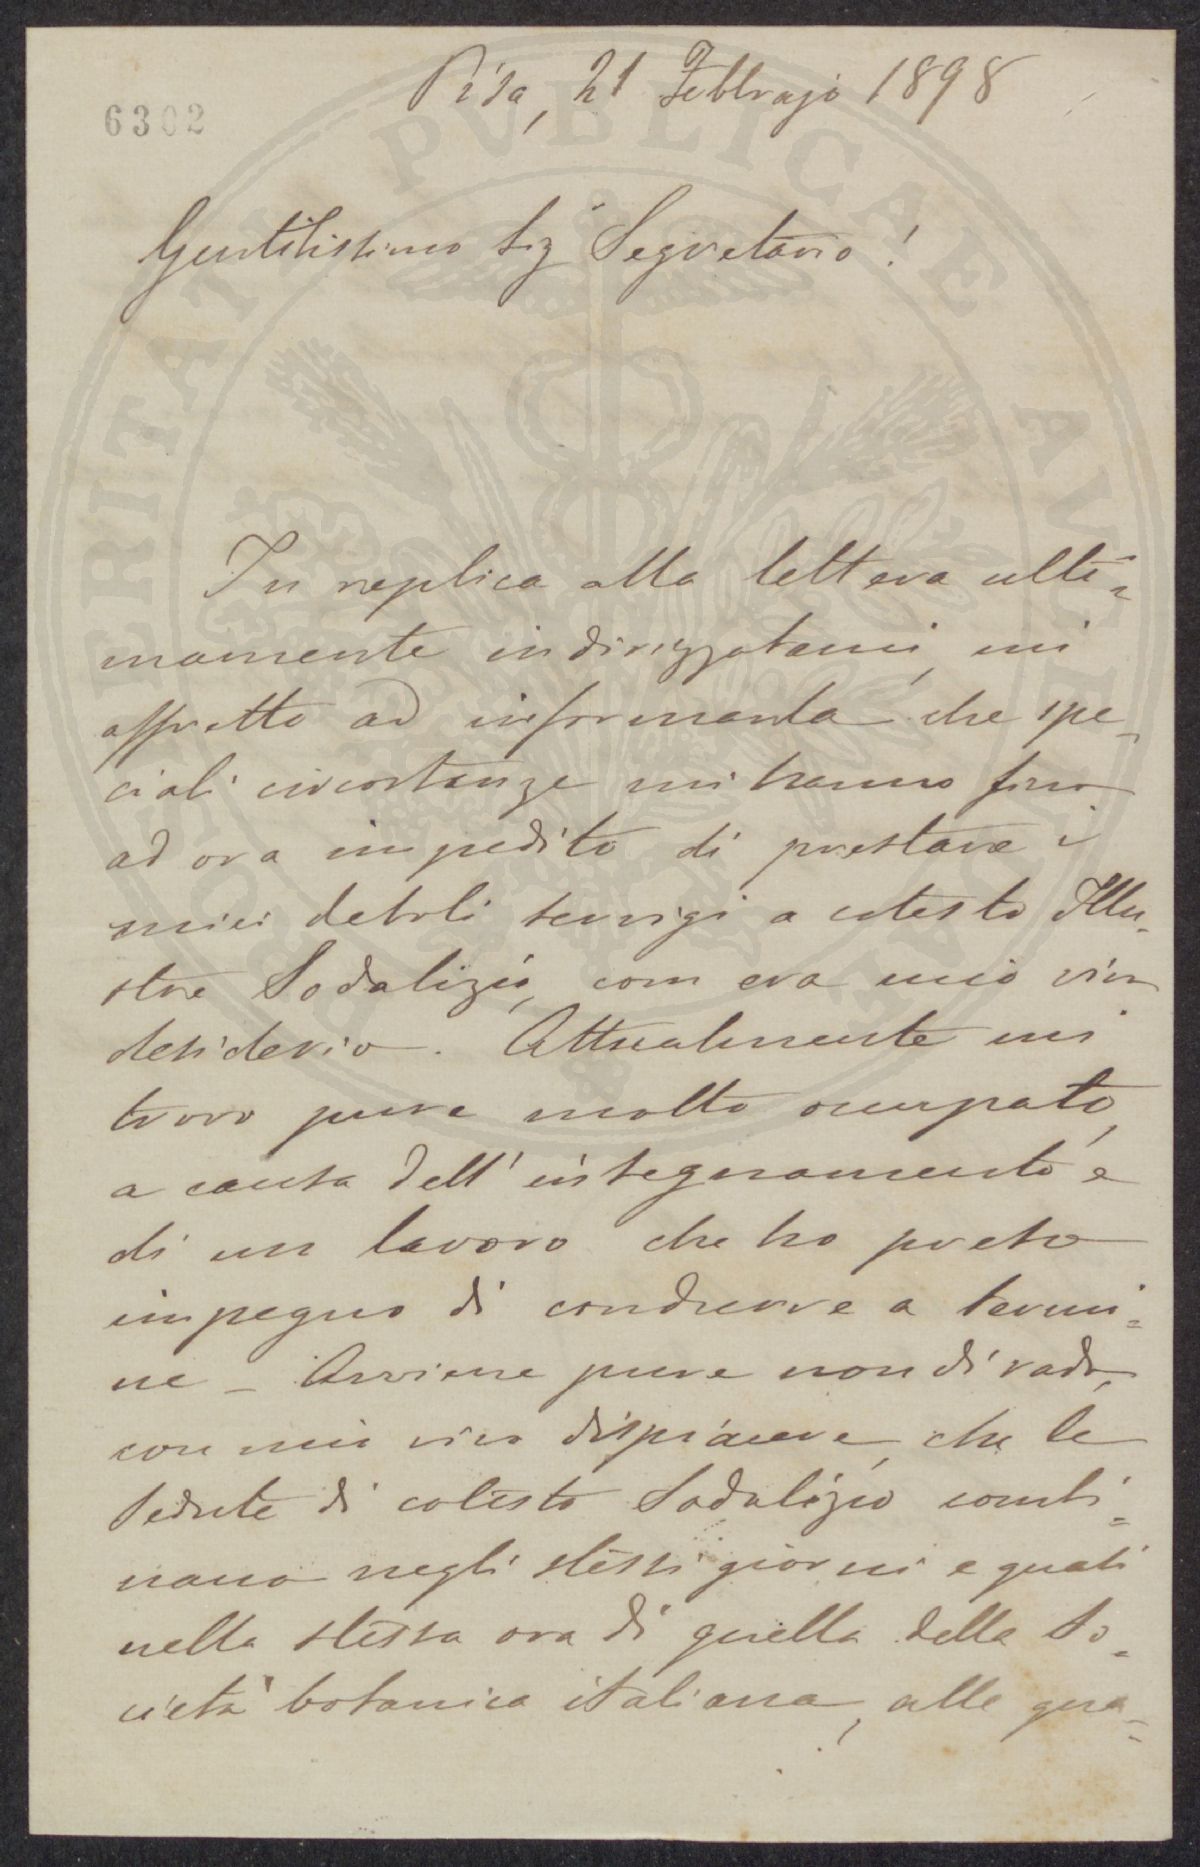 6302
Pisa, 21 Febbrajo 1898
Gentilissimo Sig Segretario!
In replica alla lettera ulti=
mamente indirizzatami, mi
affretto ad informarla che spe=
ciali circostanze mi hanno fino
ad ora impedito di prestare i
miei deboli servigi a cotesto Illu=
stre Sodalizio, com era mio vivo
desiderio. Attualmente mi
trovo pure molto occupato,
a causa dell'insegnamento e
di un lavoro che ho preso
impegno di condurre a termi=
ne _ Avviene pure non di rado,
con mio vivo dispiacere, che le
sedute di cotesto Sodalizio combi=
nano negli stessi giorni e quasi
nella stessa ora di quella della So=
cietà botanica italiana, alle qua=
PUBLICAE